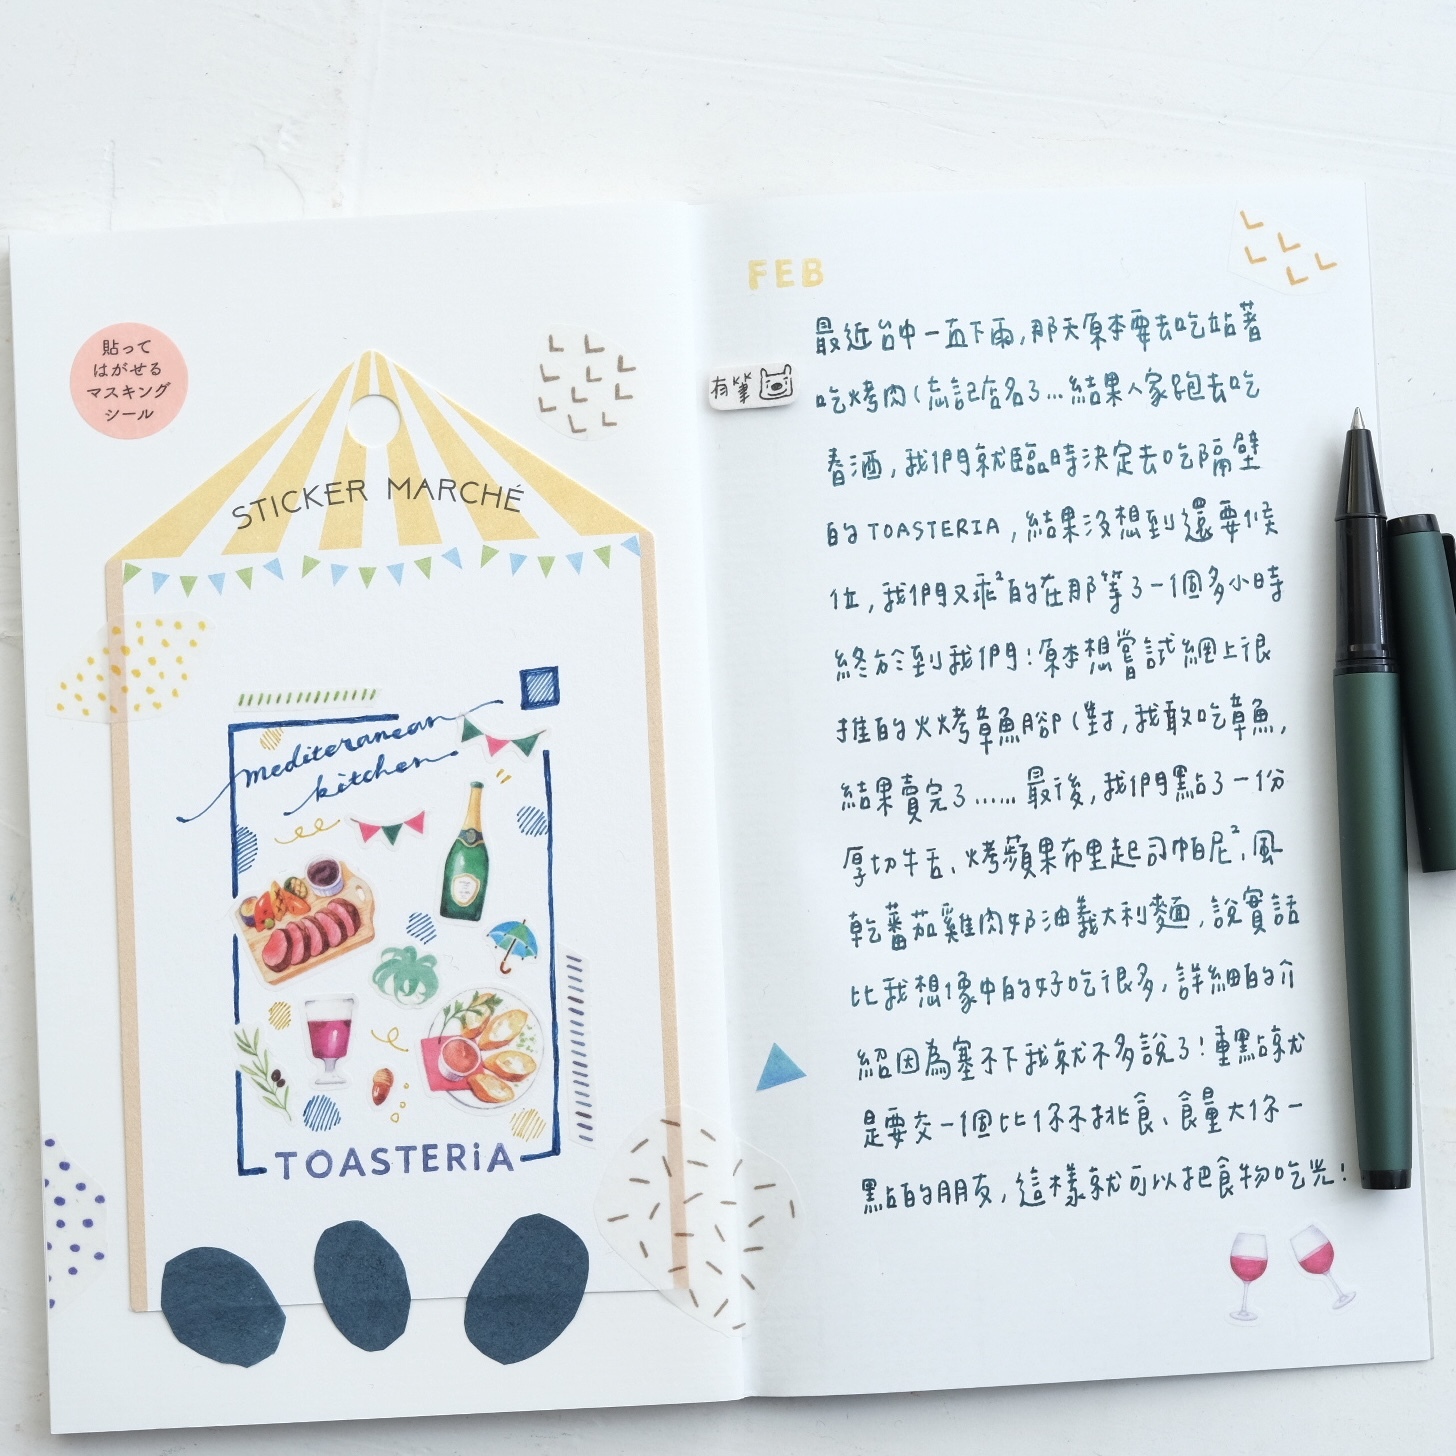 貼って
はがせる
マスキング
シール
STICKER MARCHÉ
mediteranean
kitchen
TOASTERiA
FEB
最近台中一直下雨,那天原本要去吃站著
有筆
吃烤肉(忘記店名了...結果人家跑去吃
春酒,我們就臨時決定去吃隔壁
的TOASTERIA,結果沒想到還要候
位,我們又乖²的在那等了一個多小時
終於到我們!原本想嘗試網上很
推的火烤章魚腳(對,我敢吃章魚,
結果賣完了......最後,我們點了一份
厚切牛舌、烤蘋果布里起司帕尼²、風
乾蕃茄雞肉奶油義大利麵,說實話
比我想像中的好吃很多,詳細的介
紹因為塞不下我就不多說了!重點就
是要交一個比你不挑食、食量大你一
點的朋友,這樣就可以把食物吃光!